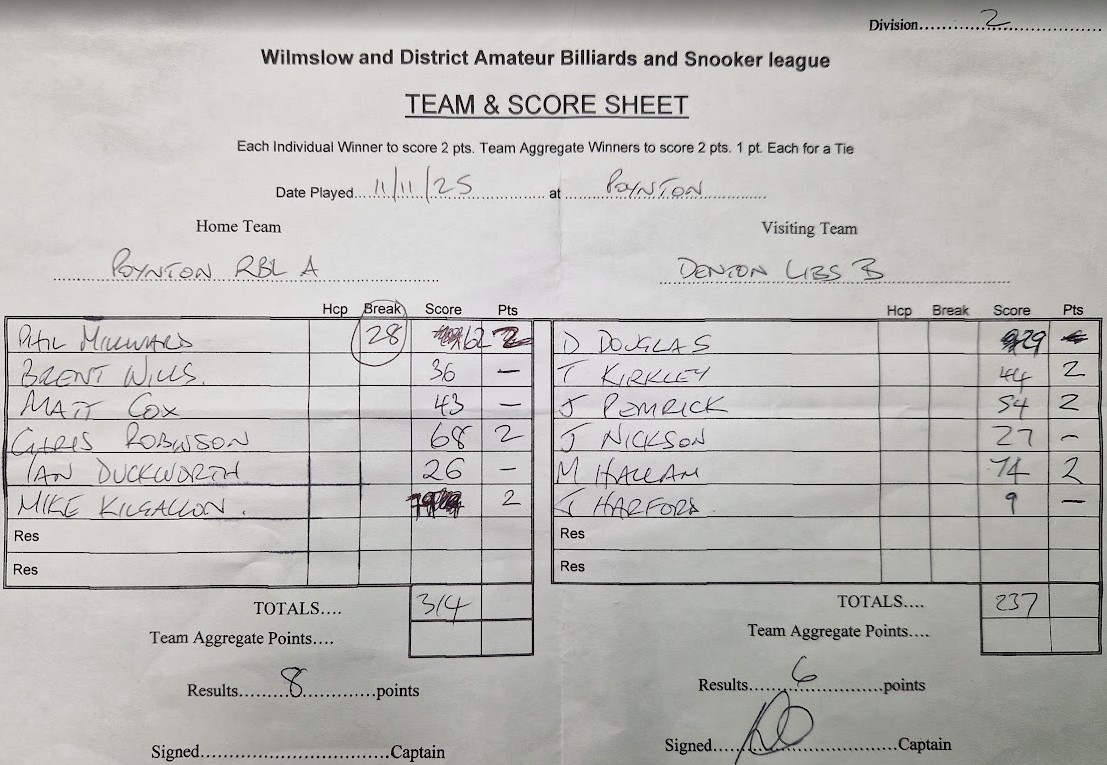 Division 2
Wilmslow and District Amateur Billiards and Snooker league
TEAM & SCORE SHEET
Each Individual Winner to score 2 pts. Team Aggregate Winners to score 2 pts. 1 pt. Each for a Tie
Date Played 11/11/25 at POYNTON
Home Team Visiting Team
POYNTON RBL A DENTON LIBS B
Hcp Break Score Pts Hcp Break Score Pts
PHIL MILLWARD 28 62 2 D DOUGLAS 29
BRENT WILLS. 36 – T KIRKLEY 44 2
MATT COX 43 – J PEMRICK 54 2
CHRIS ROBINSON 68 2 J NICKSON 27 –
IAN DUCKWORTH 26 – M HALLAM 74 2
MIKE KILGALLON. 2 J HARFORD. 9 –
Res Res
Res Res
TOTALS.... 314 TOTALS.... 237
Team Aggregate Points.... Team Aggregate Points....
Results 8 points Results 6 points
Signed Captain Signed Captain